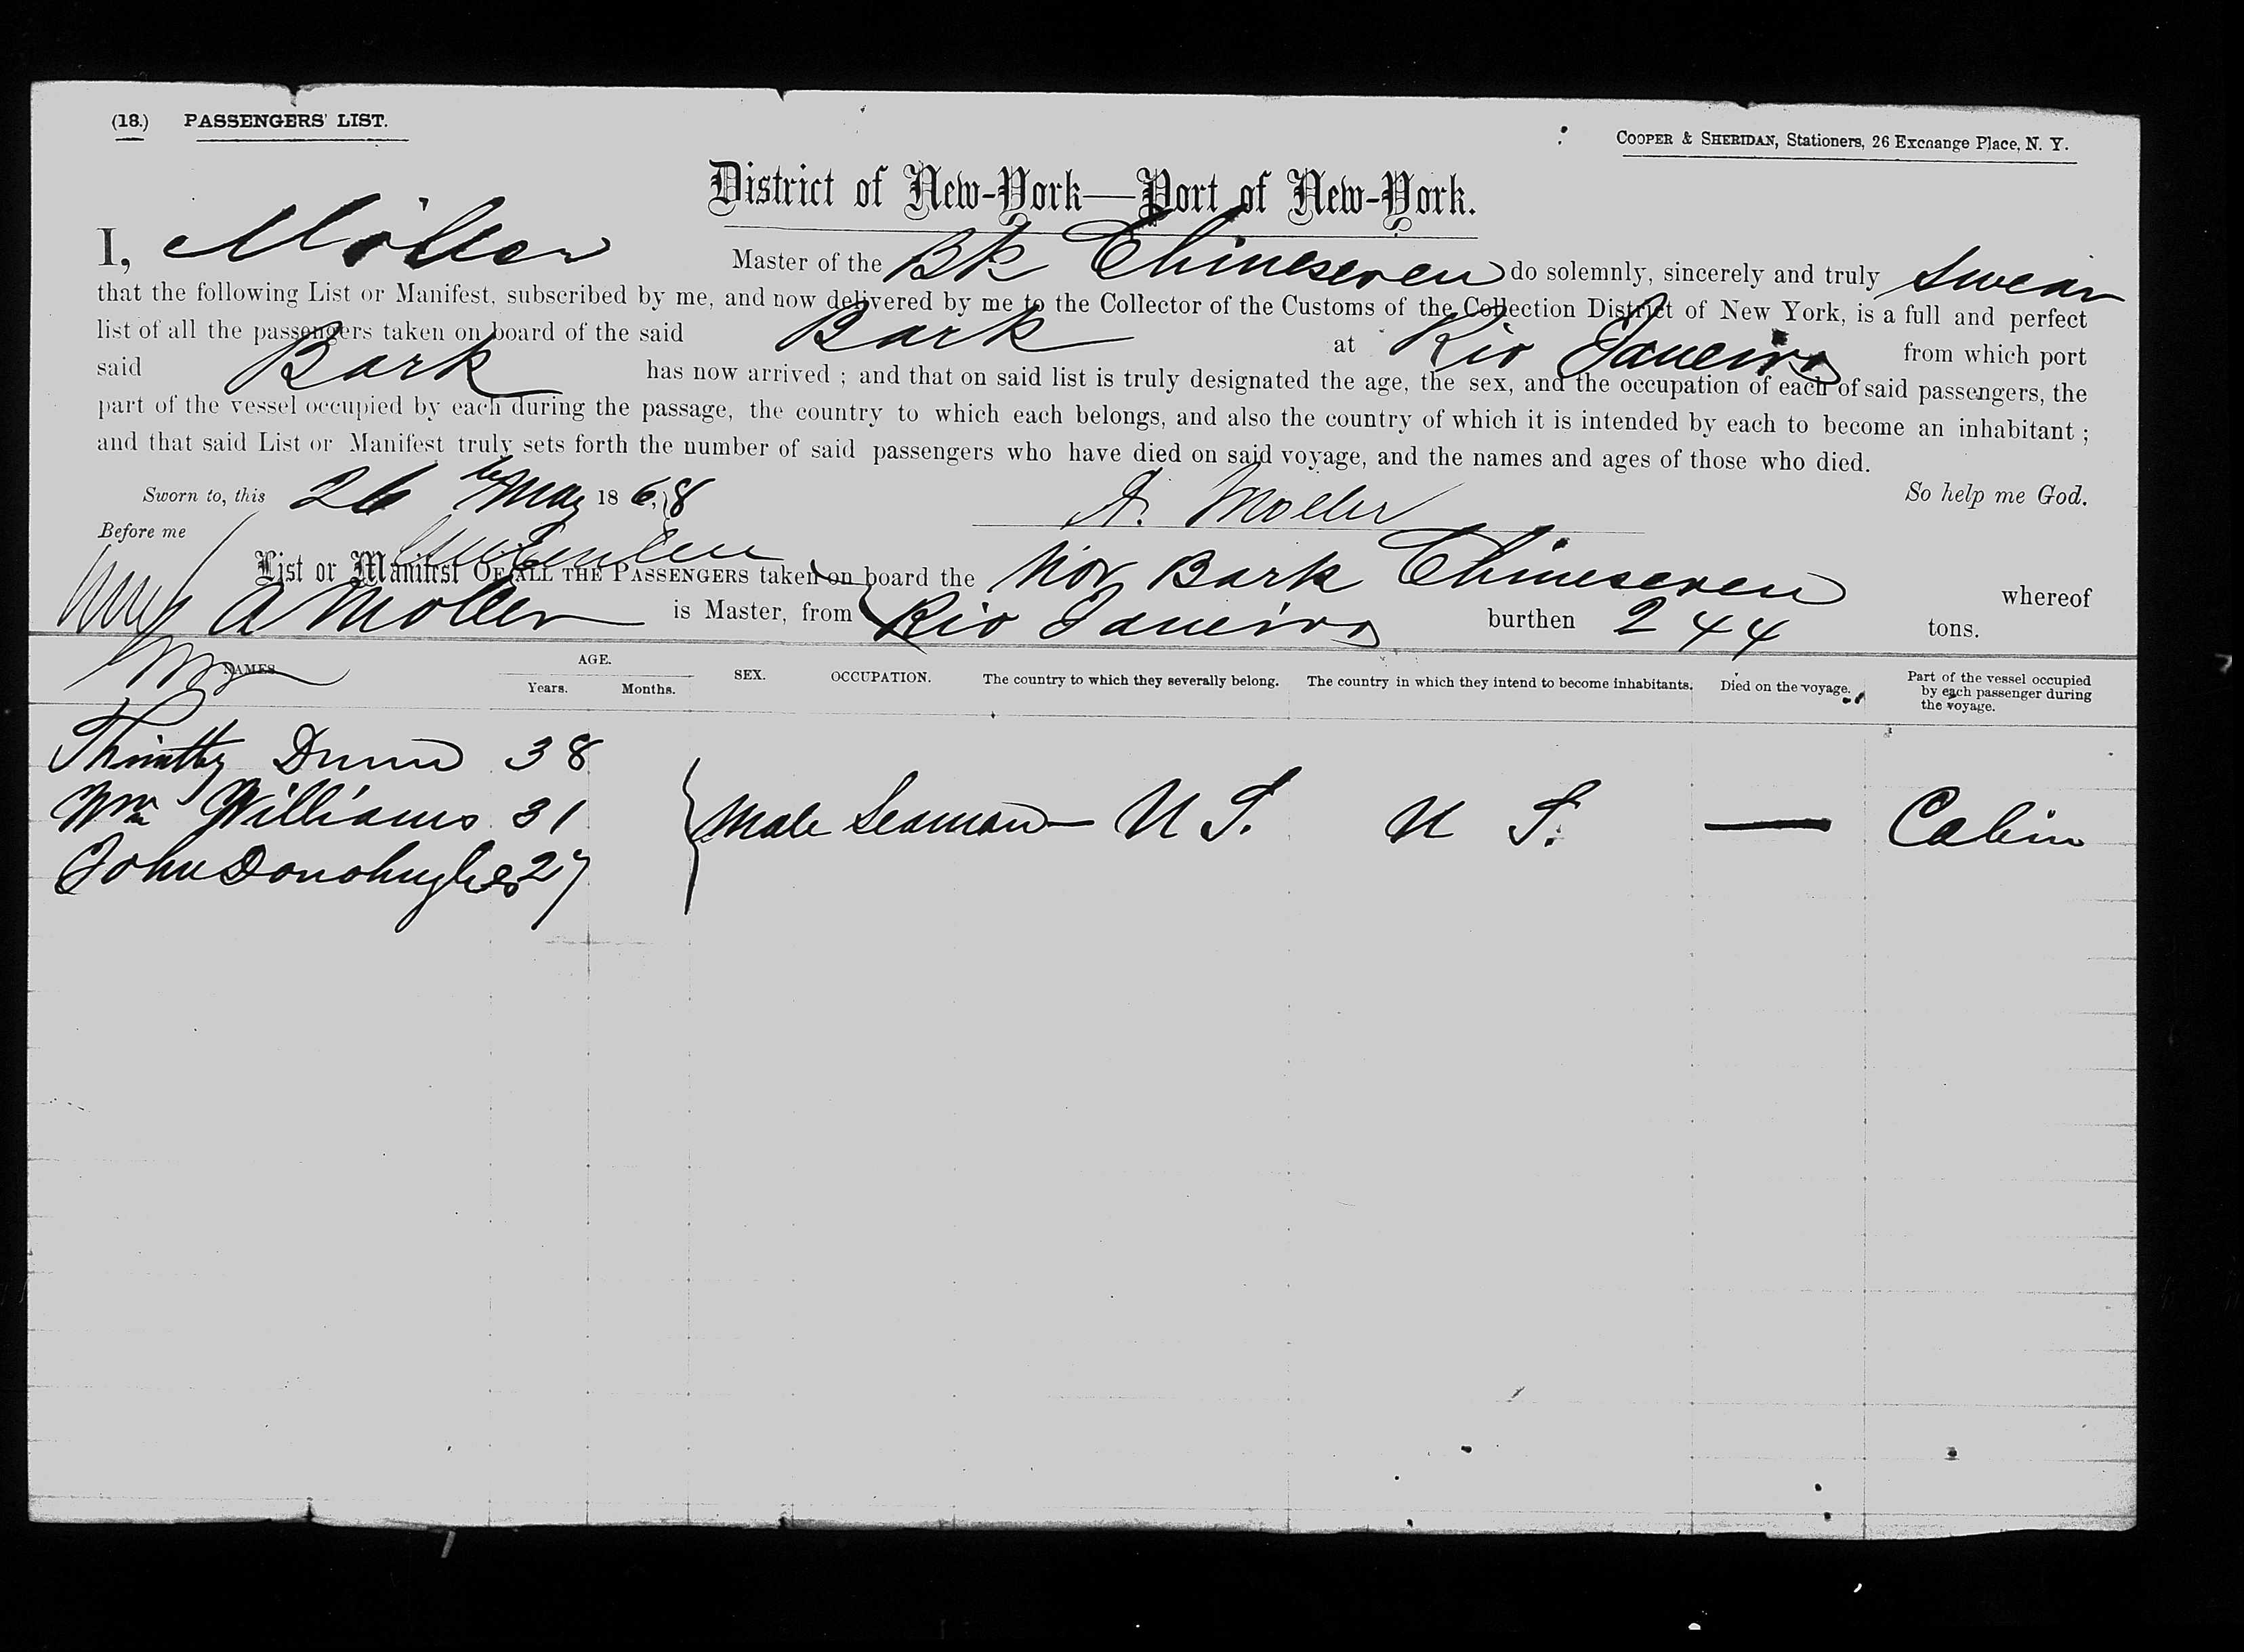 (18.) PASSENGERS' LIST.
COOPER & SHERIDAN, Stationers, 26 Exchange Place, N. Y.
District of New-York—Port of New-York.
I, Möller Master of the Bk Chineseren do solemnly, sincerely and truly swear
that the following List or Manifest, subscribed by me, and now delivered by me to the Collector of the Customs of the Collection District of New York, is a full and perfect
list of all the passengers taken on board of the said Bark at Rio Janeiro from which port
said Bark has now arrived ; and that on said list is truly designated the age, the sex, and the occupation of each of said passengers, the
part of the vessel occupied by each during the passage, the country to which each belongs, and also the country of which it is intended by each to become an inhabitant ;
and that said List or Manifest truly sets forth the number of said passengers who have died on said voyage, and the names and ages of those who died.
Sworn to, this 26 May 1868 A. Moller So help me God.
Before me
List or Manifest OF ALL THE PASSENGERS taken on board the Nor Bark Chineseren whereof
A Moller is Master, from Rio Janeiro burthen 244 tons.
NAMES AGE. Years. Months. SEX. OCCUPATION. The country to which they severally belong. The country in which they intend to become inhabitants. Died on the voyage. Part of the vessel occupied by each passenger during the voyage.
Thimthy Dunn 38
Wm Williams 31 Male Seaman U S. U S. — Cabin
John Donohughes 27